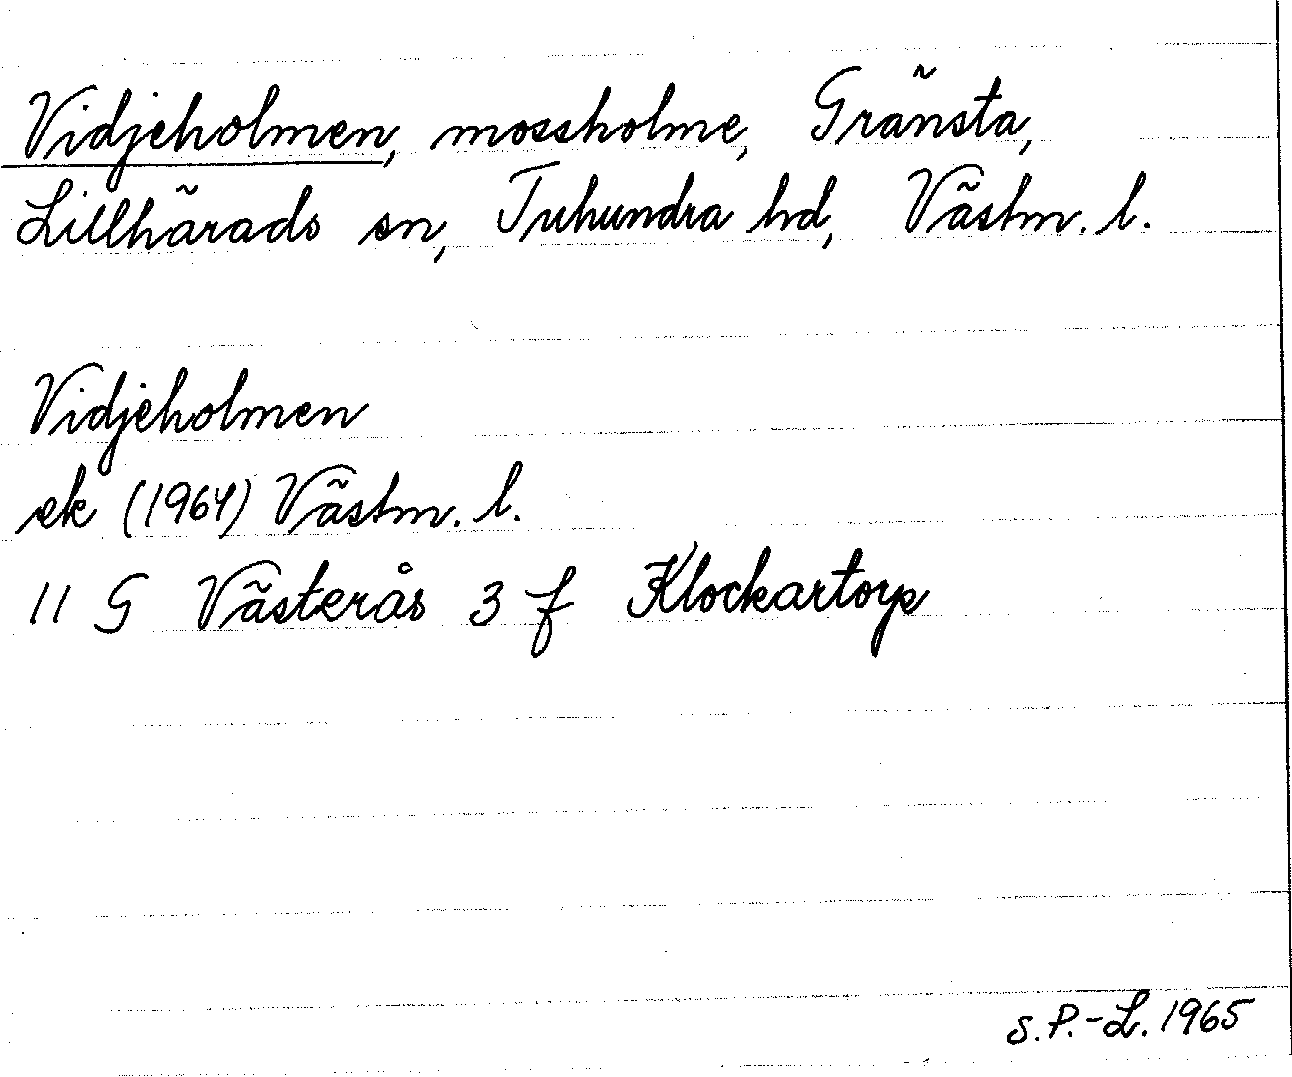 Vidjeholmen, mossholme, Gränsta,
Lillhärads sn, Tuhundra hd, Västm. l.
Vidjeholmen
ek (1964) Västm. l.
11 G Västerås 3 f Klockartorp
S. P.-L. 1965